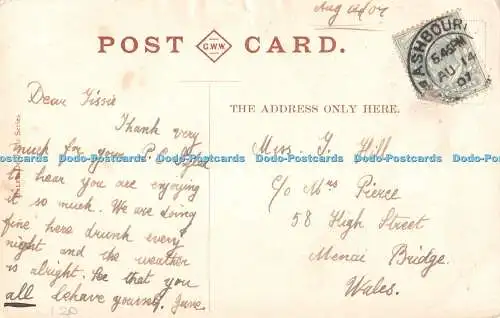 Aug 14/07
POST G.W.W. CARD.
ASHBOURN
5.45PM
AU 14
07
Dear Tissie
Thank very
much for your P.C. Glad
to hear you are enjoying
it so much. We are doing
fine here drunk every
night and the weather
is alright. See that you
all behave yourself. June
120
THE ADDRESS ONLY HERE.
Miss. T. Hill
c/o Mrs Pierce
58 High Street
Menai Bridge.
Wales.
Series.
Dodo-Postcards Dodo-Postcards Dodo-Postcards Dodo-Postcards Dodo-Postcards Dodo-Postcards